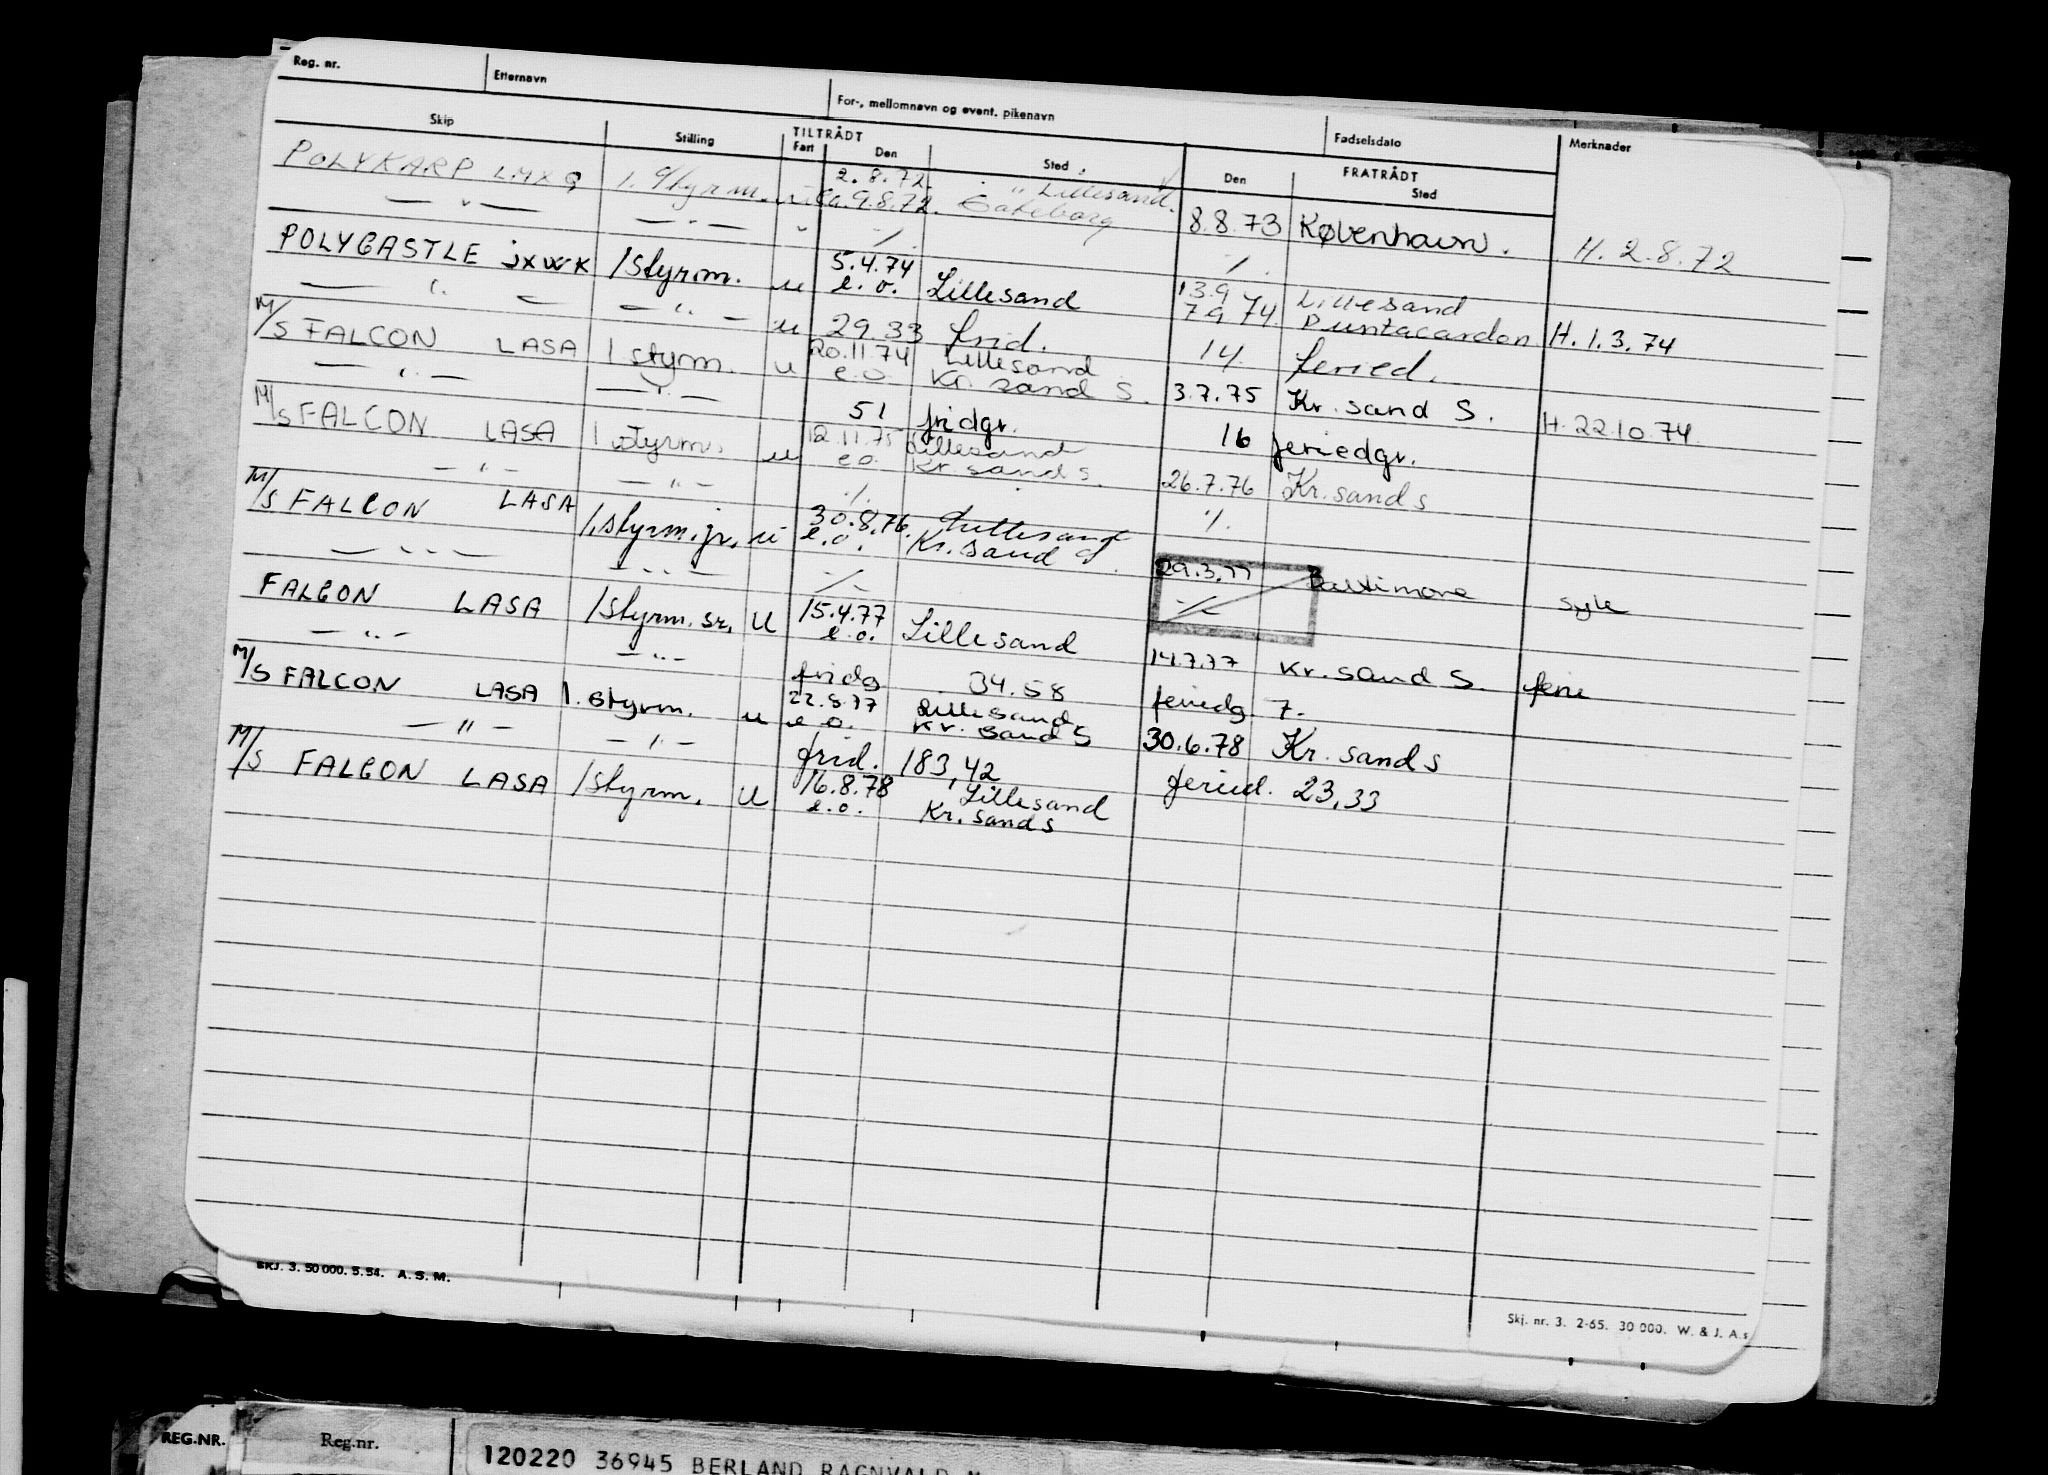 Reg. nr. Etternavn For-, mellomnavn og event. pikenavn Fødselsdato Merknader
Skip Stilling TILTRÅDT Fart Den Sted FRATRÅDT Den Sted
POLYKARP LMXQ 1. Styrm. u 2.8.72. Lillesand.
— " — — " — ca. 9.8.72. Gøteborg 8.8.73 København. H. 2.8.72
" ./. ./.
POLYCASTLE JXWK 1 styrm. u 5.4.74 e.o. Lillesand 13.9 7.9 74. Lillesand Puntacardon H. 1.3.74
— " — — " — u 29.33 frid. 14 feried.
M/S FALCON LASA 1 styrm. u 20.11.74 e.o. Lillesand Kr. sand S. 3.7.75 Kr. sand S. H. 22.10.74.
— " — — " — 51 fridgr. 16 feriedgr.
M/S FALCON LASA 1 styrm. u 12.11.75 e.o. Lillesand Kr. sand S. 26.7.76 Kr. sand S
— " — — " — ./. ./.
M/S FALCON LASA 1. styrm. jr. u 30.8.76. e.o. Lillesand Kr. sand S. 29.3.77 Baltimore syk
— " — — " — ./. ./.
FALCON LASA 1 styrm. sr. U 15.4.77 e.o. Lillesand 14.7.77 Kr. sand S. ferie
— " — — " — fridg 34.58 feriedg 7.
M/S FALCON LASA 1. styrm. u 22.8.77 e.o. Lillesand Kr. sand S 30.6.78 Kr. sand S
— " — — " — frid. 183,42 feried. 23,33
M/S FALCON LASA 1 styrm. U 16.8.78 e.o. Lillesand Kr. sand S
SKJ. 3. 50 000. 5. 54. A. S. M.
Skj. nr. 3. 2-65. 30 000. W. & J. A.s
REG.NR. Reg.nr. 120220 36945 BERLAND RAGNVALD